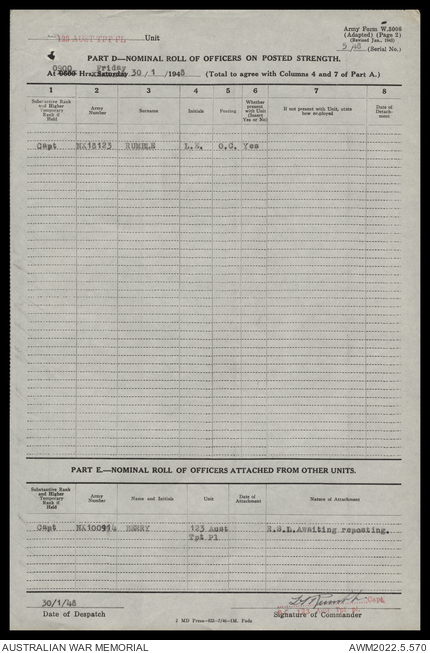 Army Form W.3008
(Adapted) (Page 2)
(Revised Jan., 1942)
123 AUST TPT PL Unit
5/48 (Serial No.)
PART D—NOMINAL ROLL OF OFFICERS ON POSTED STRENGTH.
0800 Friday
At 0600 Hrs. Saturday 30 / 1 /1948 (Total to agree with Columns 4 and 7 of Part A.)
1 2 3 4 5 6 7 8
Substantive Rank and Higher Temporary Rank if Held
Army Number
Surname
Initials
Posting
Whether present with Unit (Insert Yes or No)
If not present with Unit, state how employed
Date of Detachment
Capt NX18123 RUMBLE L.N. O.C. Yes
PART E.—NOMINAL ROLL OF OFFICERS ATTACHED FROM OTHER UNITS.
Substantive Rank and Higher Temporary Rank if Held
Army Number
Name and Initials
Unit
Date of Attachment
Nature of Attachment
Capt NX100914 BERRY 123 Aust R.S.L. Awaiting reposting.
Tpt Pl
30/1/48
Capt
Date of Despatch
O.C. 123 Aust Tpt Pl
Signature of Commander
AUSTRALIAN WAR MEMORIAL
AWM2022.5.570